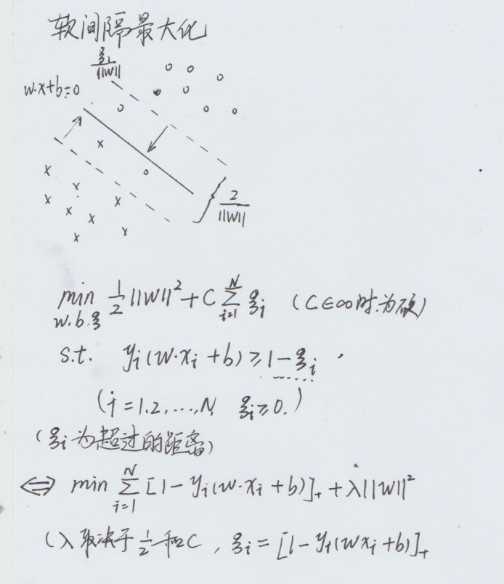 软间隔最大化
ξi/||w||
w·x+b=0
2/||w||
min w.b.ξ 1/2 ||w||² + C Σ_{i=1}^{N} ξi (C∈∞时为硬)
s.t. yi(w·xi+b) ≥ 1-ξi,
(i=1.2,...,N, ξi≥0.)
(ξi为超过的距离)
⇔ min Σ_{i=1}^{N} [1-yi(w·xi+b)]₊ + λ||w||²
(λ取决于 1/2 和C, ξi=[1-yi(wxi+b)]₊